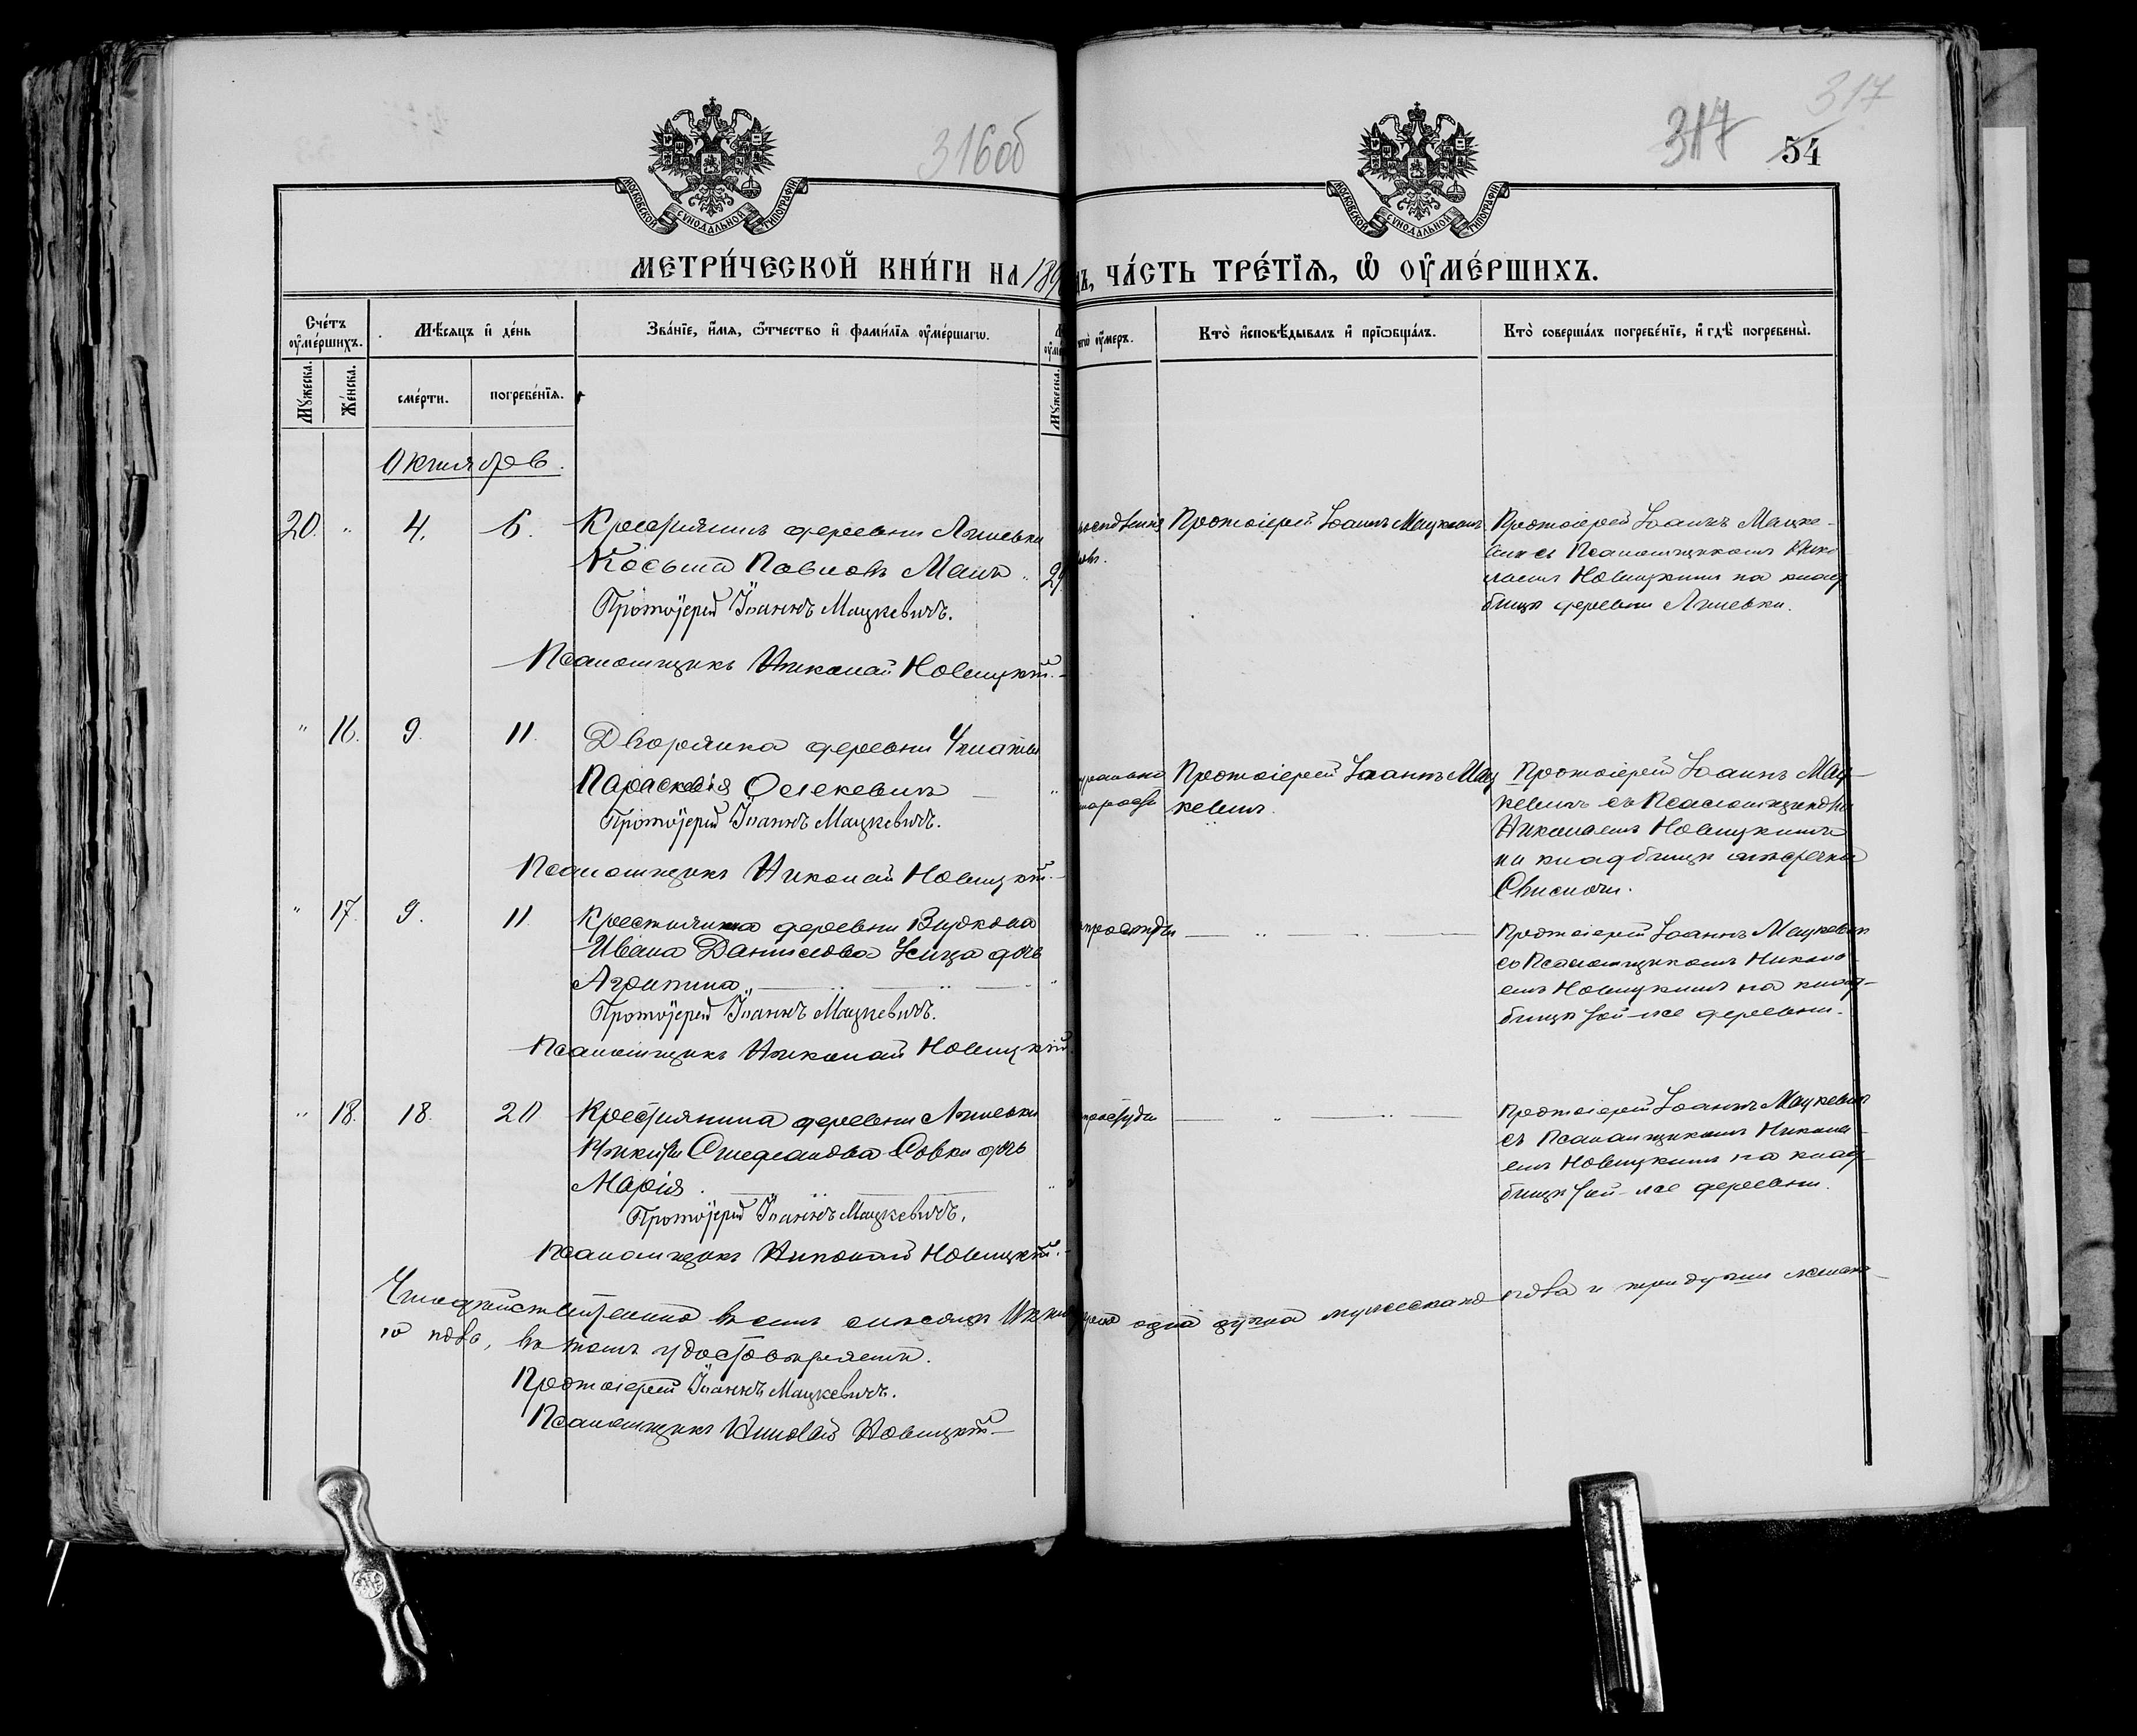 316об
317
317
54
МОСКОВСКОЙ СУНОДАЛЬНОЙ ТИПОГРАФІИ
МОСКОВСКОЙ СУНОДАЛЬНОЙ ТИПОГРАФІИ
МЕТРИ́ЧЕСКОЙ КНИ́ГИ НА 189
Ъ, ЧА́СТЬ ТРЕ́ТІЯ, Ѡ ОУ҆МЕ́РШИХЪ.
Сче́тъ оу҆ме́ршихъ.
Мѣ́сяцъ и҆ де́нь
Зва́нїе, и҆́мя, ѻ҆́тчество и҆ фами́лїя оу҆ме́ршагѡ.
оу҆́меръ.
Кто̀ и҆сповѣ́дывалъ и҆ прїѡбща́лъ.
Кто̀ соверша́лъ погребе́нїе, и҆ гдѣ̀ погребены̀.
Мꙋ́жеска.
Же́нска.
сме́рти.
погребе́нїя.
Мꙋ́жеска.
Октябрь.
20. " 4. 6. Крестьянинъ деревни
Косьма Павловъ
Протоіерей Іоаннъ Мацкевичъ.
Псаломщикъ Николай Новицкій.
Протоіерей Іоаннъ Мацкевичъ
Протоіерей Іоаннъ Мацке-
вичъ съ Псаломщикомъ Нико
лаемъ Новицкимъ на клад
бищѣ деревни
" 16. 9. 11. Дворянка деревни
Параскевія Олехевичъ
Протоіерей Іоаннъ Мацкевичъ.
Псаломщикъ Николай Новицкій.
Протоіерей Іоаннъ Мац
кевичъ.
Протоіерей Іоаннъ Мац-
кевичъ съ Псаломщикомъ
Николаемъ Новицкимъ
на кладбищѣ
" 17. 9. 11. Крестьянина деревни
Ивана Данилова дочь
Агрипина
Протоіерей Іоаннъ Мацкевичъ.
Псаломщикъ Николай Новицкій.
простуды
Протоіерей Іоаннъ Мацкевич
съ Псаломщикомъ Никола-
емъ Новицкимъ на клад-
бищѣ той-же деревни.
" 18. 18. 20 Крестьянина деревни
Никиты Стефанова Совки дочь
Марія.
Протоіерей Іоаннъ Мацкевичъ.
Псаломщикъ Николай Новицкій.
простуды
Протоіерей Іоаннъ Мацкевич
съ Псаломщикомъ Никола-
емъ Новицкимъ на клад-
бищѣ той-же деревни.
въ семъ мѣсяцѣ одна душа мужескаго пола и три души женска-
го пола, въ томъ удостовѣряемъ.
Протоіерей Іоаннъ Мацкевичъ.
Псаломщикъ Николай Новицкій